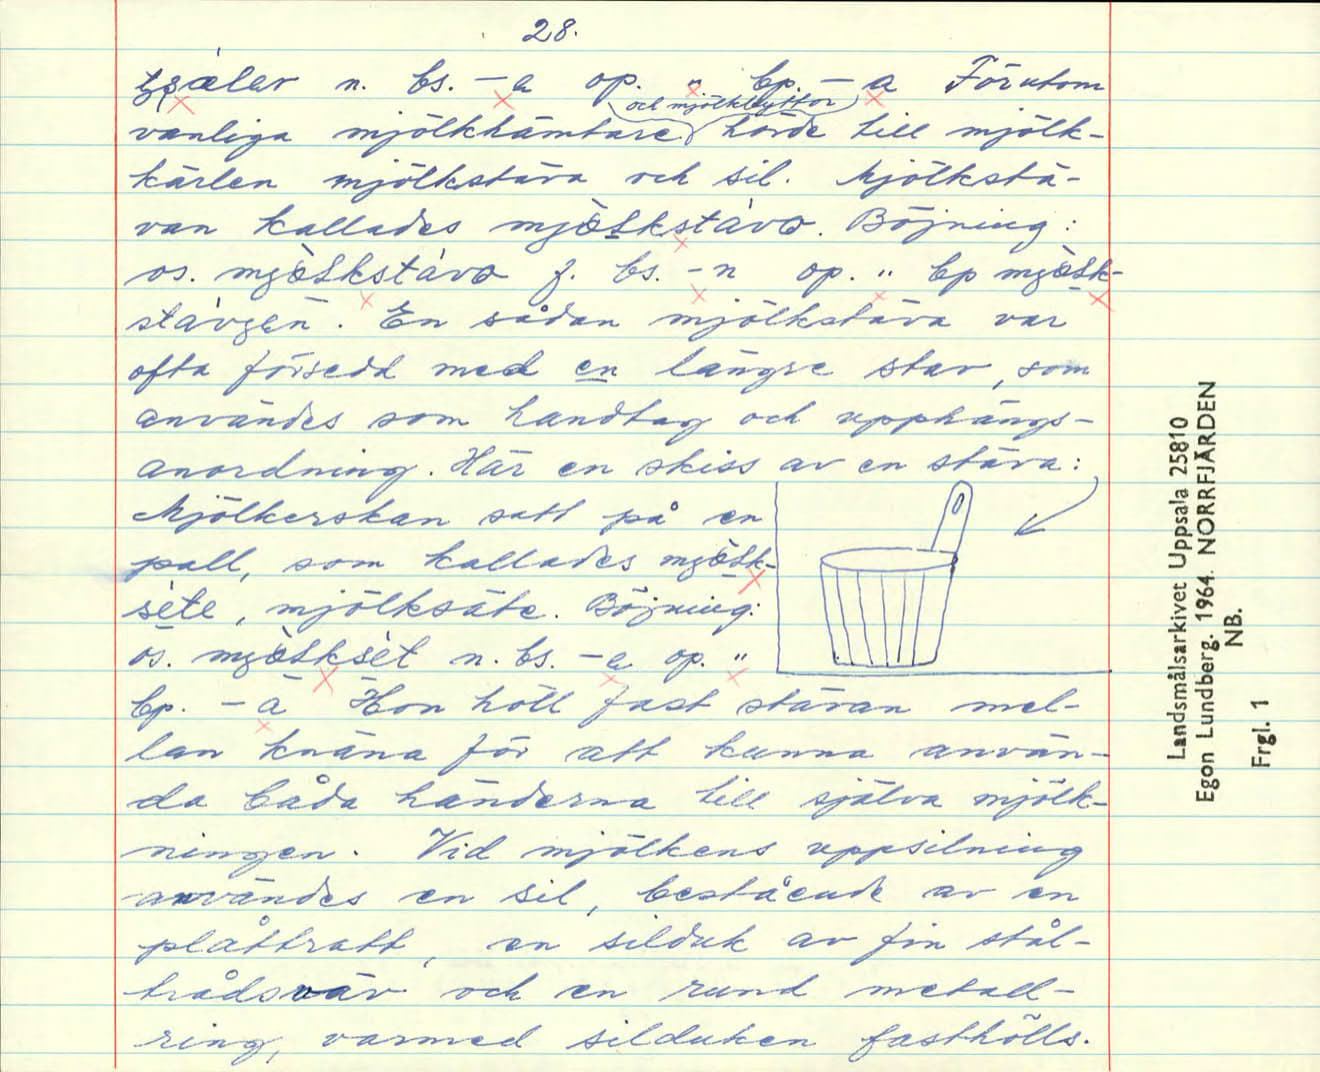 28.
n. bs. -a op. " bp. -a Förutom
och mjölkbyttor
vanliga mjölkhämtare hörde till mjölk-
kärlen mjölkstäva och sil. Mjölkstä-
van kallades mjòlkstávo. Böjning:
os. mjòlkstávo f. bs. -n op. " bp mjòlk-
stávjen. En sådan mjölkstäva var
ofta försedd med en längre stav, som
användes som handtag och upphängs-
anordning. Här en skiss av en stäva:
Mjölkerskan satt på en
pall, som kallades mjòlk-
sète, mjölksäte. Böjning:
os. mjòlksèt n. bs. -e op. "
bp. -a Hon höll fast stävan mel-
lan knäna för att kunna använ-
da båda händerna till själva mjölk-
ningen. Vid mjölkens uppsilning
användes en sil, bestående av en
plåttratt, en silduk av fin stål-
trådsväv och en rund metall-
ring, varmed silduken fasthölls.
Landsmålsarkivet Uppsala 25810
Egon Lundberg. 1964. NORRFJÄRDEN
NB.
Frgl. 1